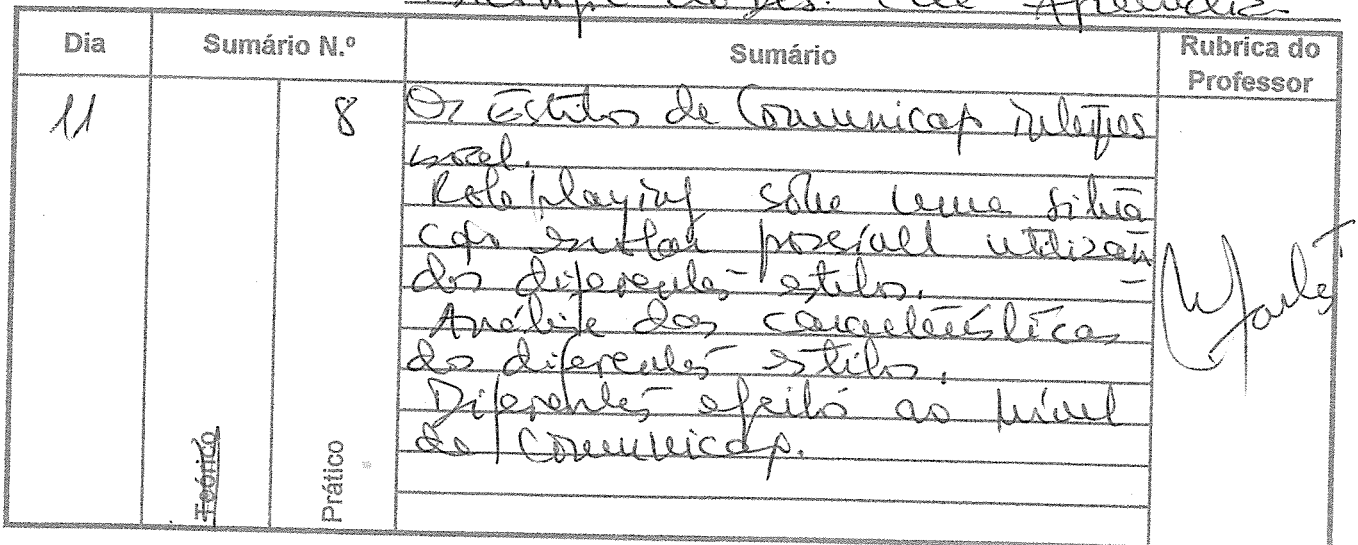 Dia
Sumário N.º
Sumário
Rubrica do
Professor
11
8
Os Estilos de Comunicação interpes
soal.
Roleplaying sobre uma situa
ção utilizan
do diferentes estilos.
Análise das características
do diferentes estilos.
Diferentes efeitos ao nível
da Comunicação.
Teórico
Prático